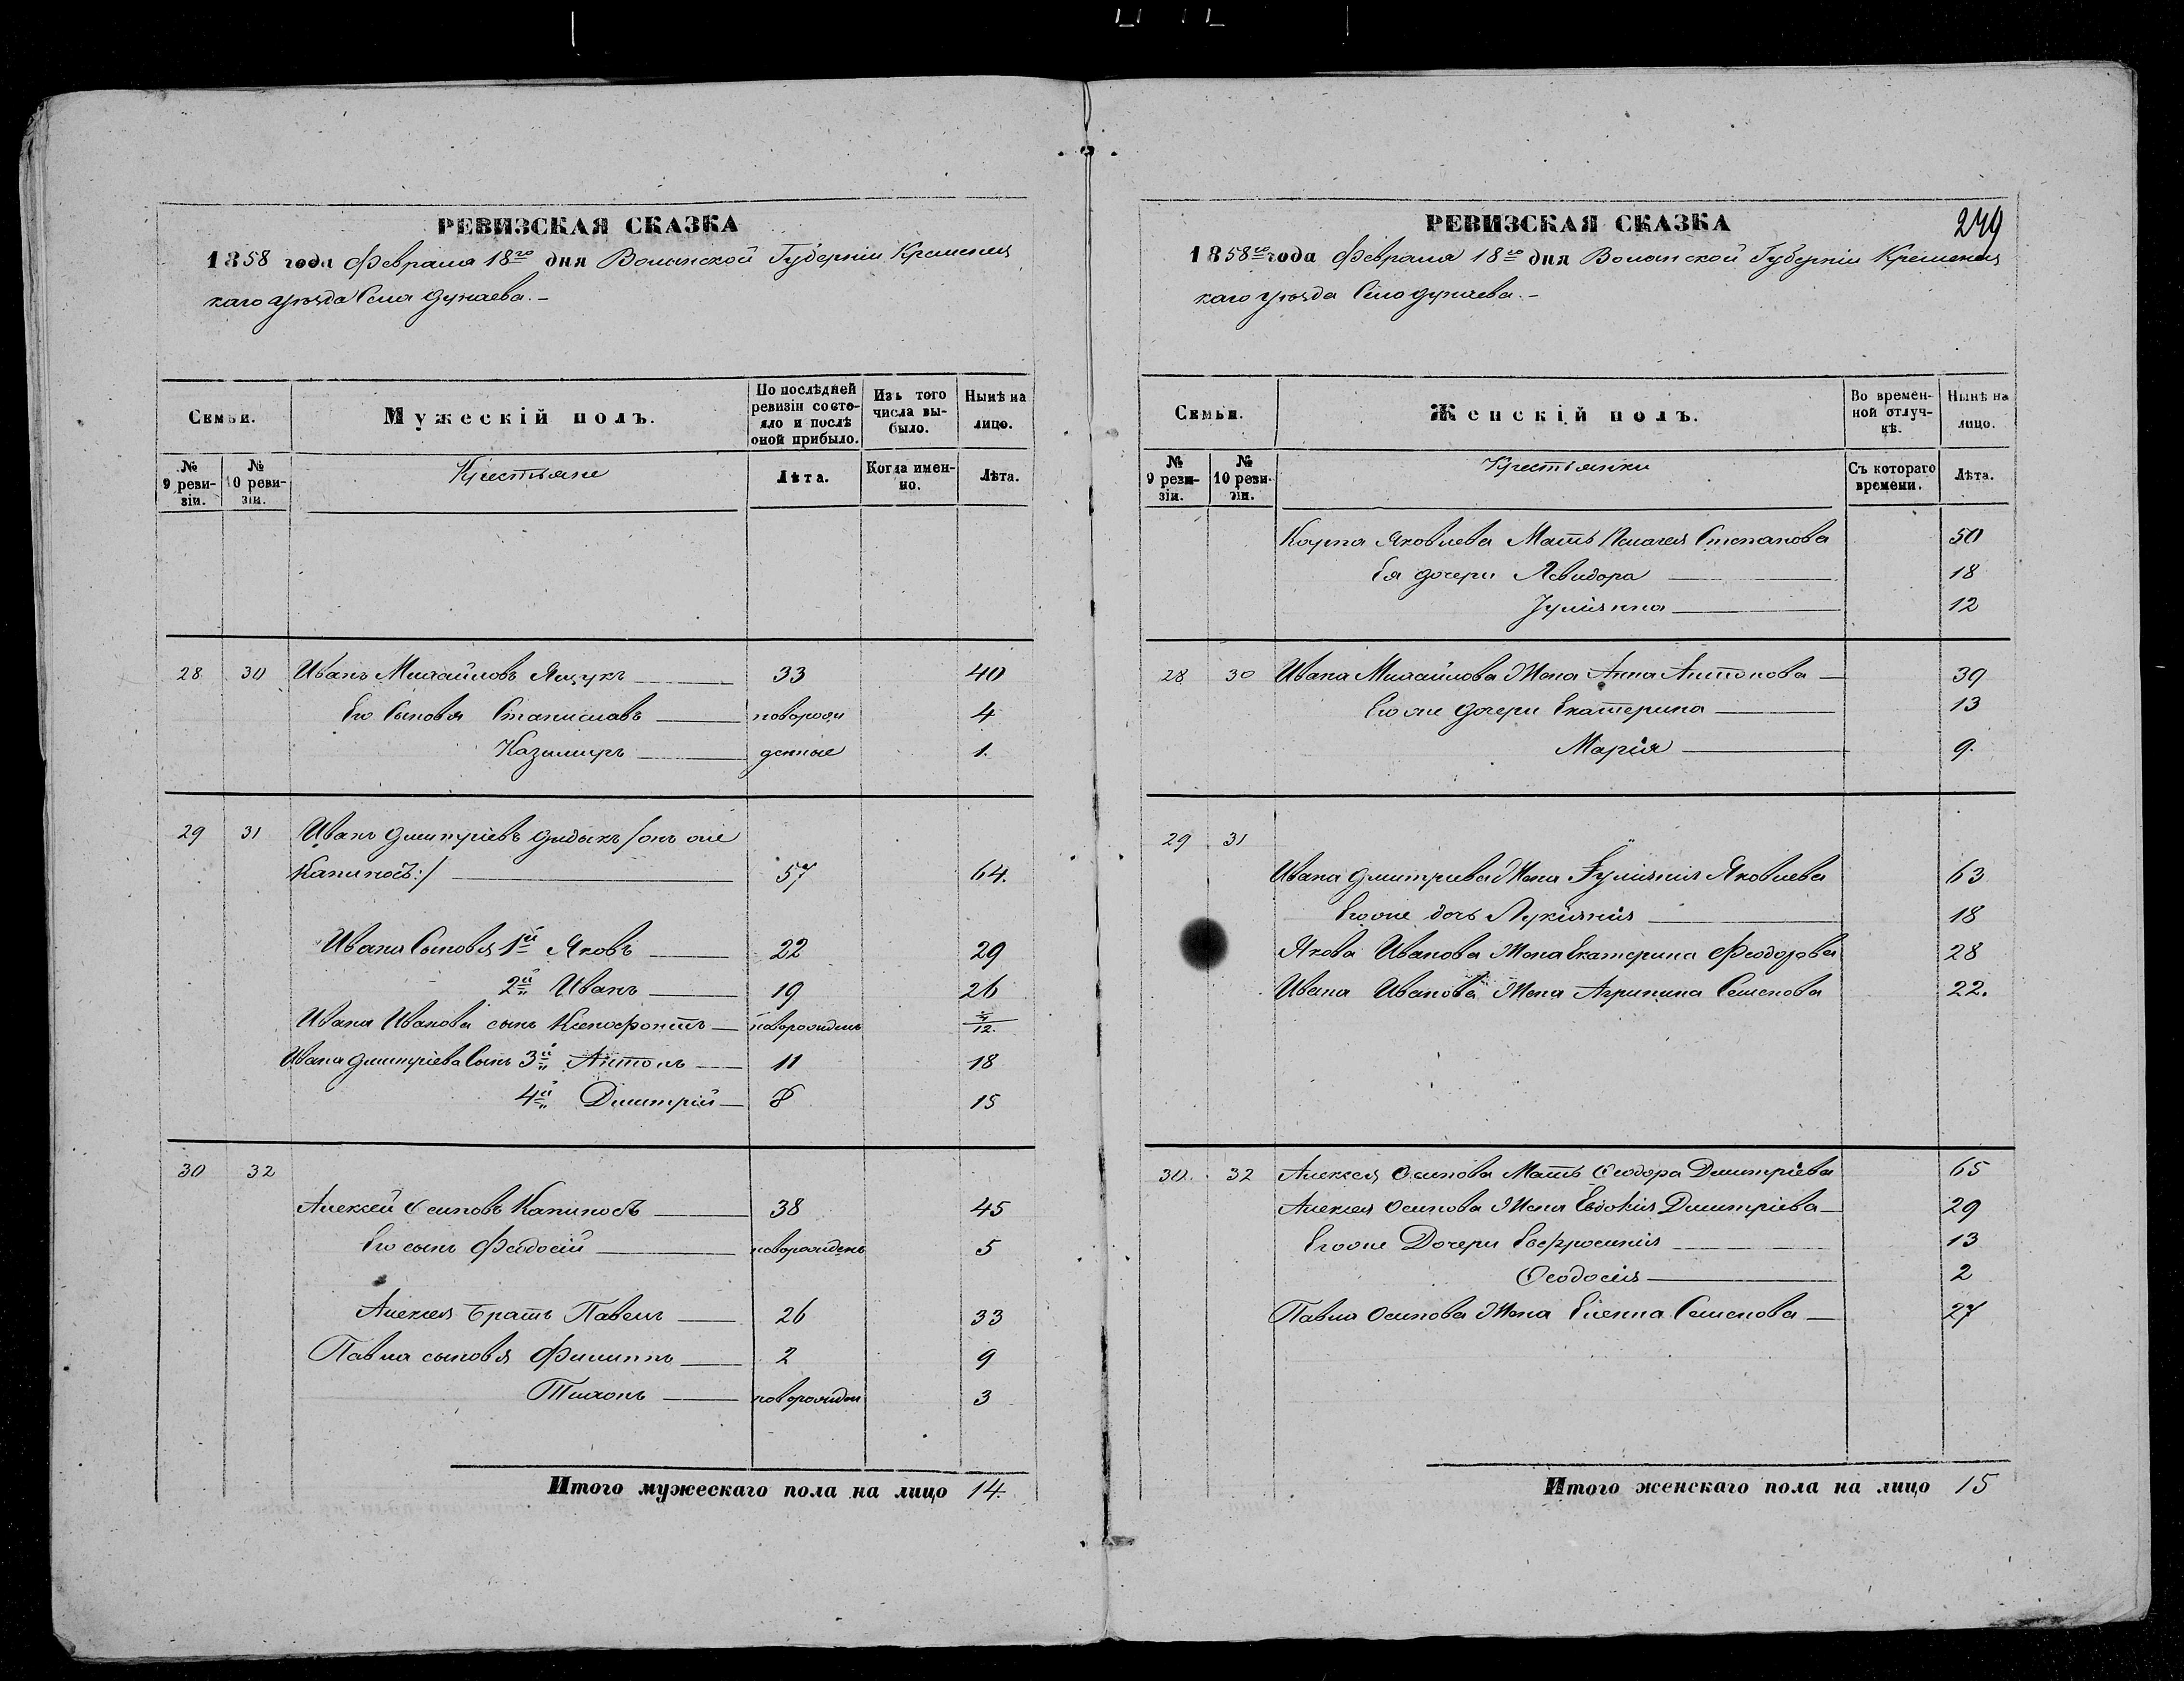 РЕВИЗСКАЯ СКАЗКА
1858 года Февраля 18го дня Волынской Губерніи Кременец
каго уѣзда Села Дунаева.-
Семьи.
Мужескій полъ.
По послѣдней ревизіи состояло и послѣ оной прибыло.
Изъ того числа выбыло.
Нынѣ на лицо.
№ 9 ревизіи.
№ 10 ревизіи.
Крестьяне
Лѣта.
Когда именно.
Лѣта.
28 30 Иванъ Михайловъ Яцукъ 33 40
Его Сыновя Станиславъ новорож 4
Казимиръ денные 1.
29 31 Иванъ Дмитріевъ Дидыкъ /онъ же
Капиносъ:/ 57 64.
Ивана Сыновя 1й Яковъ 22 29
2й Иванъ 19 26
Ивана Иванова сынъ Ксенофонтъ новорожденъ /12.
Ивана Дмитріева Сынъ 3й Антонъ 11 18
4й Дмитрій 8 15
30 32
Алексей Осиповъ Капиносъ 38 45
Его сынъ Феодосій новорожденъ 5
Алексея Братъ Павелъ 26 33
Павла сыновя Филиппъ 2 9
Тихонъ новорожден 3
Итого мужескаго пола на лицо 14.
249
РЕВИЗСКАЯ СКАЗКА
1858го года Февраля 18го дня Волынской Губерніи Кременец
каго уѣзда Села Дунаева.-
Семьи.
Женскій полъ.
Во временной отлучкѣ.
Нынѣ на лицо.
№ 9 ревизіи.
№ 10 ревизіи.
Крестьянки
Съ котораго времени.
Лѣта.
Карпа Яковлева Мать Пелагея Степанова 50
Ея дочери 18
Іуліянна 12
28 30 Ивана Михайлова Жена Анна Антонова 39
Егоже дочери Екатерина 13
Марія 9.
29 31
Ивана Дмитриева Жена Іуліянія Яковлева 63
Егоже дочь Лукіянія 18
Якова Иванова Жена Екатерина Феодорова 28
Ивана Иванова Жена Агрипина Семенова 22.
30. 32 Алексея Осипова Мать Феодора Дмитріева 65
Алексея Осипова Жена Евдокія Дмитріева 29
Егоже Дочери Евфросинія 13
Феодосія 2
Павла Осипова Жена Еленна Семенова 27
Итого женскаго пола на лицо 15